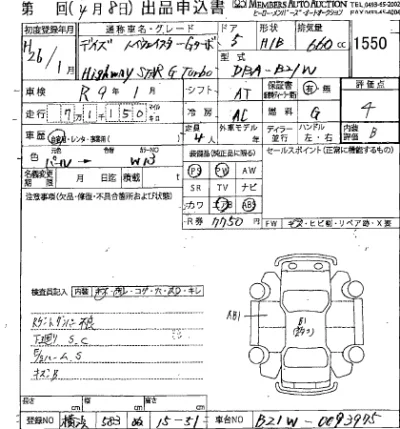 第 回(4月8日)出品申込書 MEMBERS AUTO AUCTION
ヒーローメンバーズ・オートオークション
初度登録年月 通称車名・グレード ドア 形状 排気量
H26/1 デイズ ハイウェイスターGターボ 5 H/B 660cc 1550
Highway STAR G Turbo DBA-B21W
車検 R9年1月 シフト AT 保証書 有・無 評価点
走行 71150 冷房 AC 燃料 G 4
車歴 自家用・レンタ・事業用 定員 4人 外車モデル ディーラー 並行 ハンドル 左・右 内装評価 B
色 元色 カラーNO 装備品(純正品に限る) セールスポイント(正常に機能するもの)
パール → W13
名義変更期限 月 日迄 積載量 t PS PW AW
注意事項(欠品・修復・不具合箇所および状態) SR TV ナビ
カワ エアB ABS
R券 7750円 FW キズ・ヒビ割・リペア跡・X要
検査員記入 内装 キズ・汚レ・コゲ・穴・式ロ・キレ
AB1
B1
下廻り S.C
キズ有
長さ cm 幅 cm 高さ cm
登録NO 横浜 583 ぬ 15-51 車台NO B21W-0093975